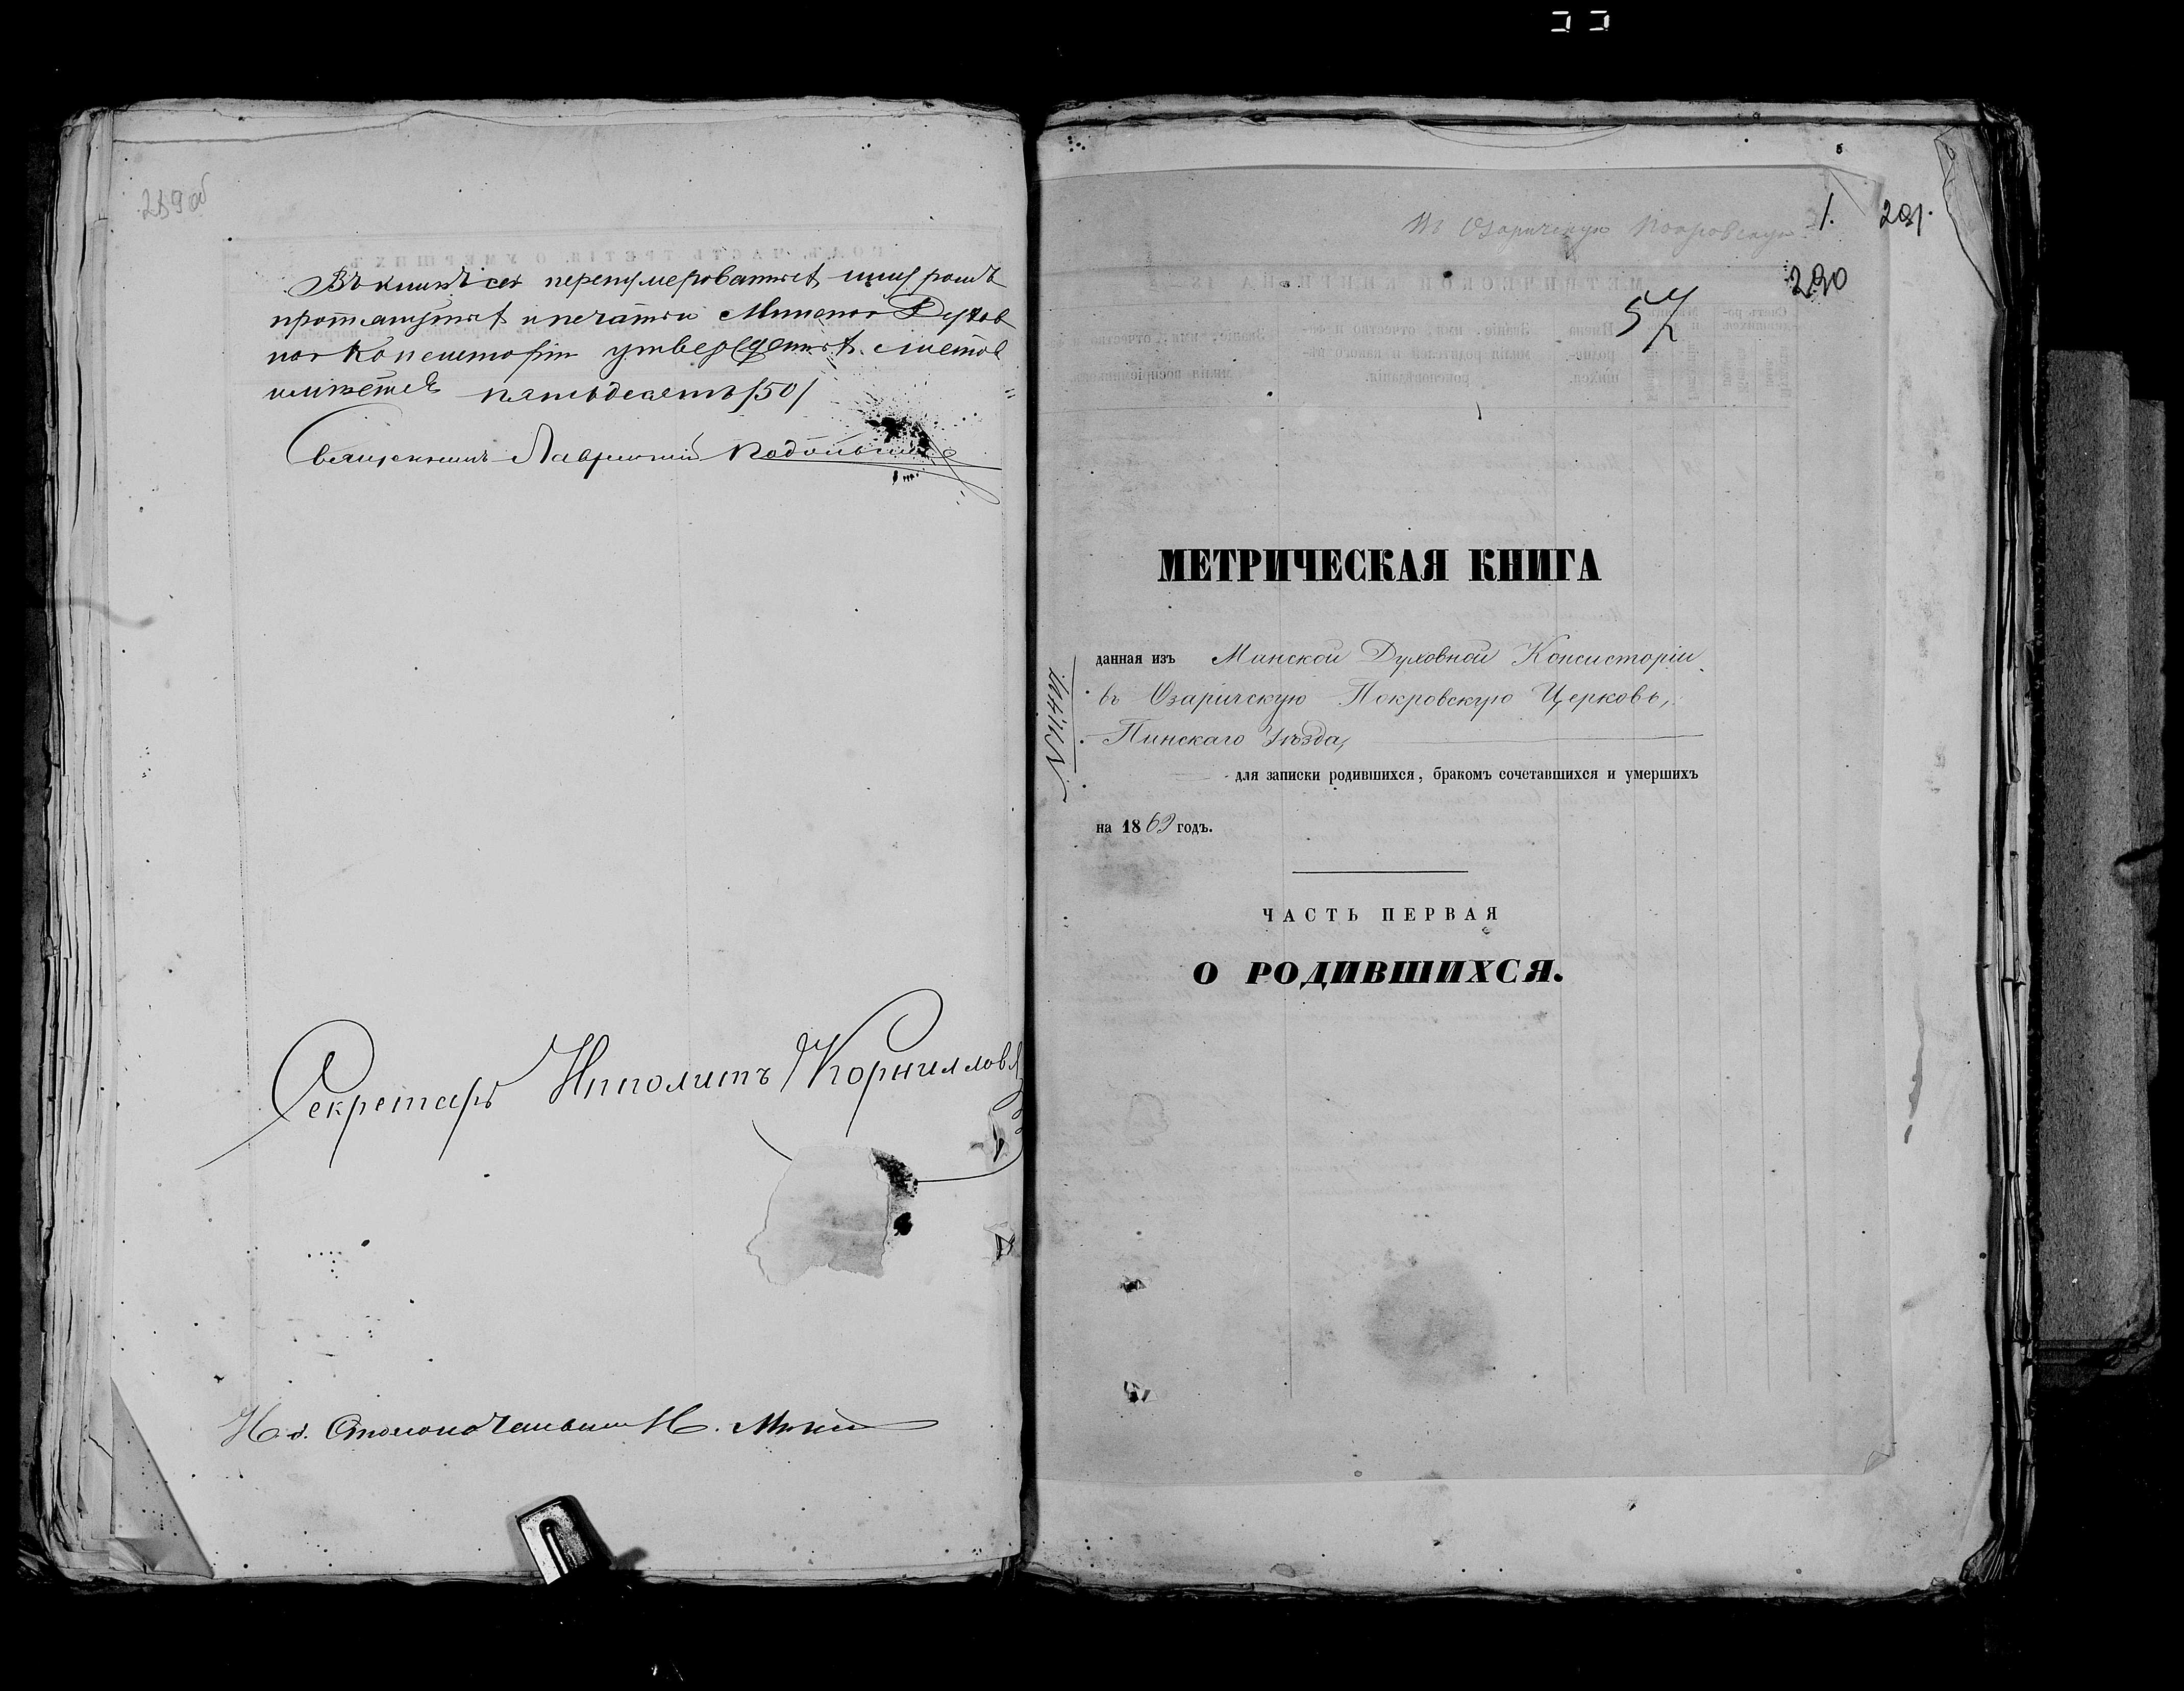 289 об
Въ книгѣ сей перенумерованной шнуромъ
протянутой и печатью Минской Духов
ной Консисторіи утвержденной листовъ
имѣется пятьдесятъ /50/
Священникъ Лаврентій
Секретарь Ипполитъ Корнилловъ
И. д. Столоначальника И.
Въ Озаричскую Покровскую
1.
291.
290
57
МЕТРИЧЕСКАЯ КНИГА
данная изъ Минской Духовной Консисторіи
въ Озаричскую Покровскую Церковь,
Пинскаго Уѣзда,
для записки родившихся, бракомъ сочетавшихся и умершихъ
на 1869 годъ.
ЧАСТЬ ПЕРВАЯ
О РОДИВШИХСЯ.